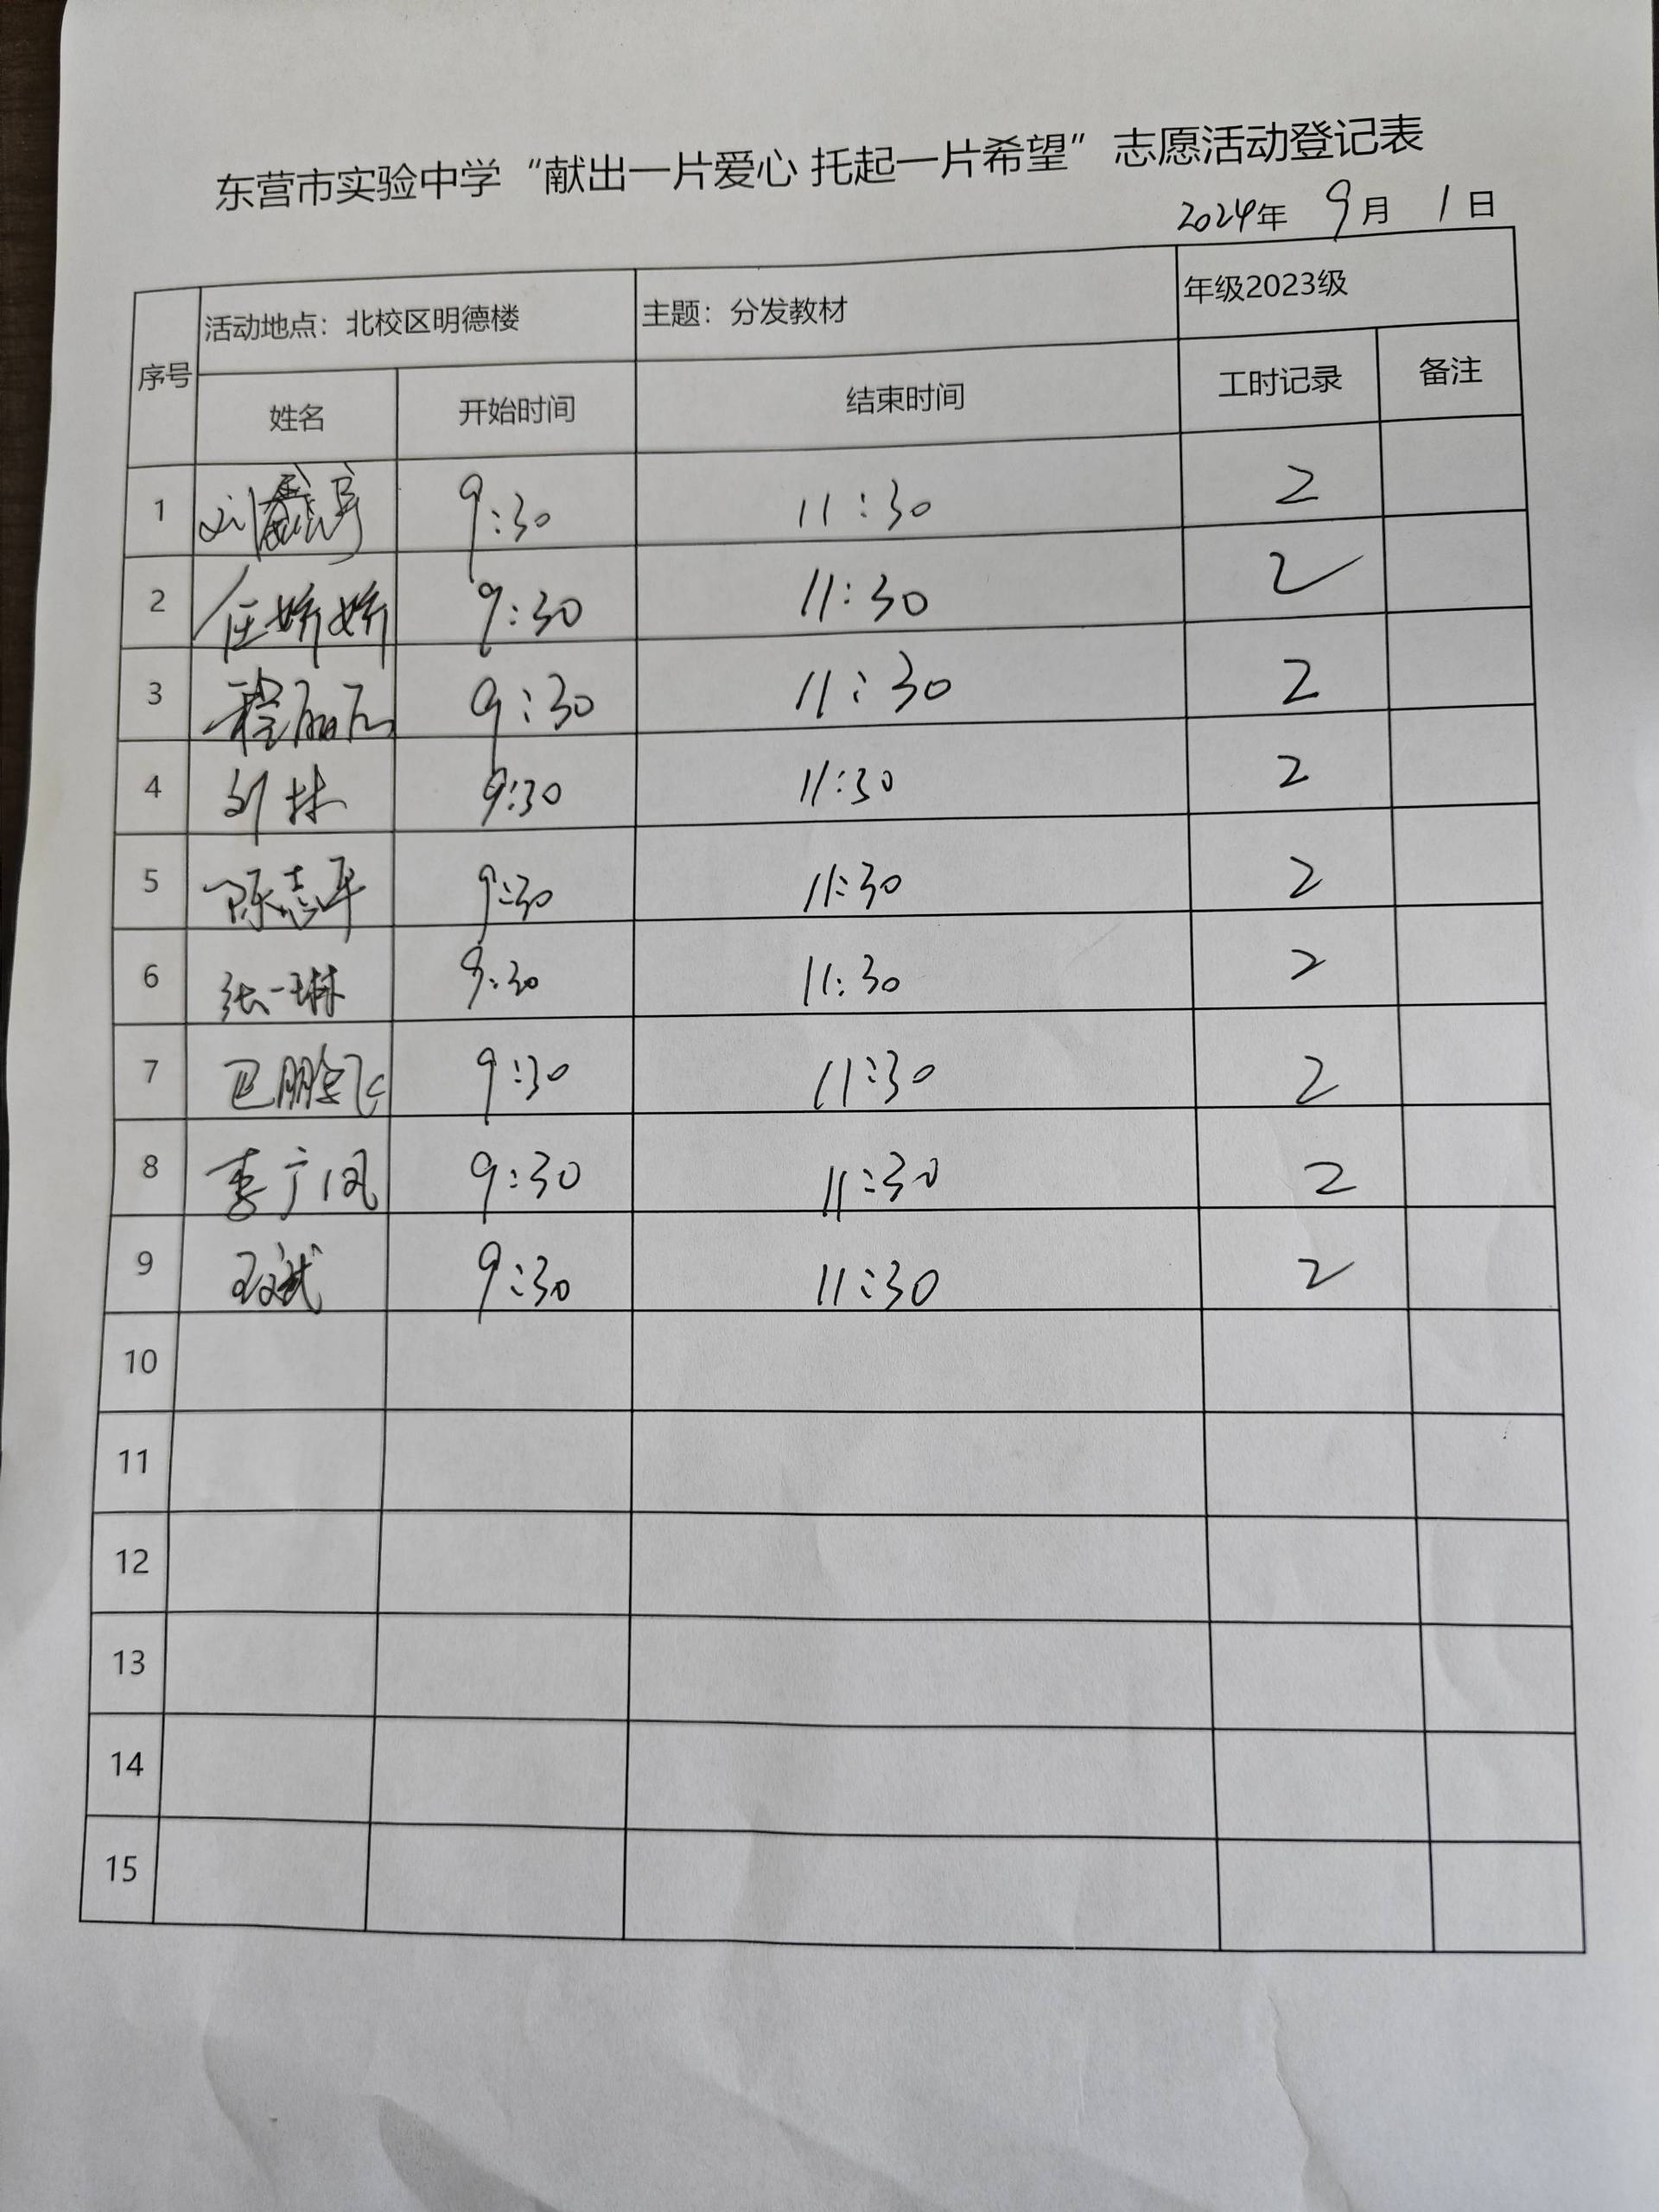 东营市实验中学“献出一片爱心 托起一片希望”志愿活动登记表
2024年 9月 1日
序号 活动地点：北校区明德楼 主题：分发教材 年级2023级
姓名 开始时间 结束时间 工时记录 备注
1 刘 9:30 11:30 2
2 任娇娇 9:30 11:30 2
3 程丽 9:30 11:30 2
4 9:30 11:30 2
5 陈志平 9:30 11:30 2
6 张一琳 9:30 11:30 2
7 巴鹏飞 9:30 11:30 2
8 李广凤 9:30 11:30 2
9 王斌 9:30 11:30 2
10
11
12
13
14
15